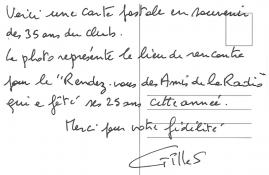 Voici une carte postale en souvenir
des 35 ans du club.
La photo représente le lieu de rencontre
pour le "Rendez-vous des Amis de la Radio"
qui a fêté ses 25 ans cette année.
Merci pour votre fidélité
Gilles